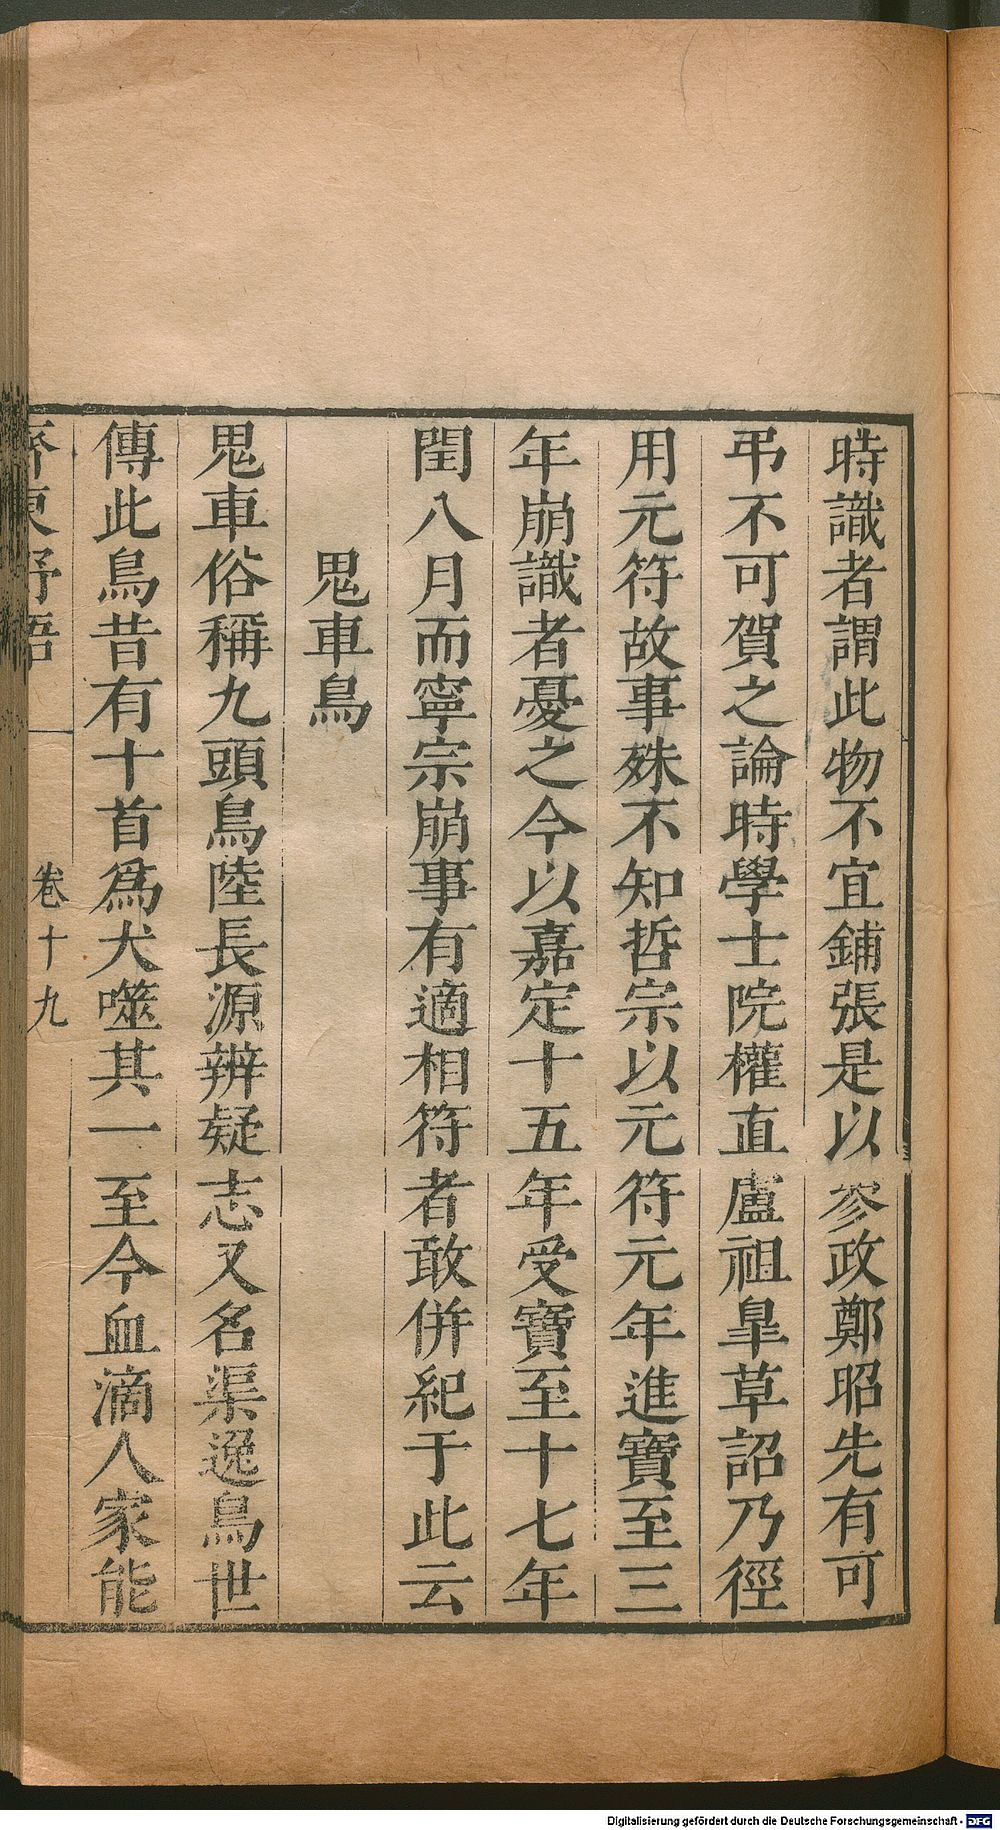 時識者謂此物不宜鋪張是以參政鄭昭先有可
弔不可賀之論時學士院權直盧祖皐草詔乃徑
用元符故事殊不知哲宗以元符元年進寶至三
年崩識者憂之今以嘉定十五年受寶至十七年
閏八月而寧宗崩事有適相符者敢併紀于此云
鬼車鳥
鬼車俗稱九頭鳥陸長源辨疑志又名渠逸鳥世
傳此鳥昔有十首為犬噬其一至今血滴人家能
齊東野語 卷十九
Digitalisierung gefördert durch die Deutsche Forschungsgemeinschaft - DFG